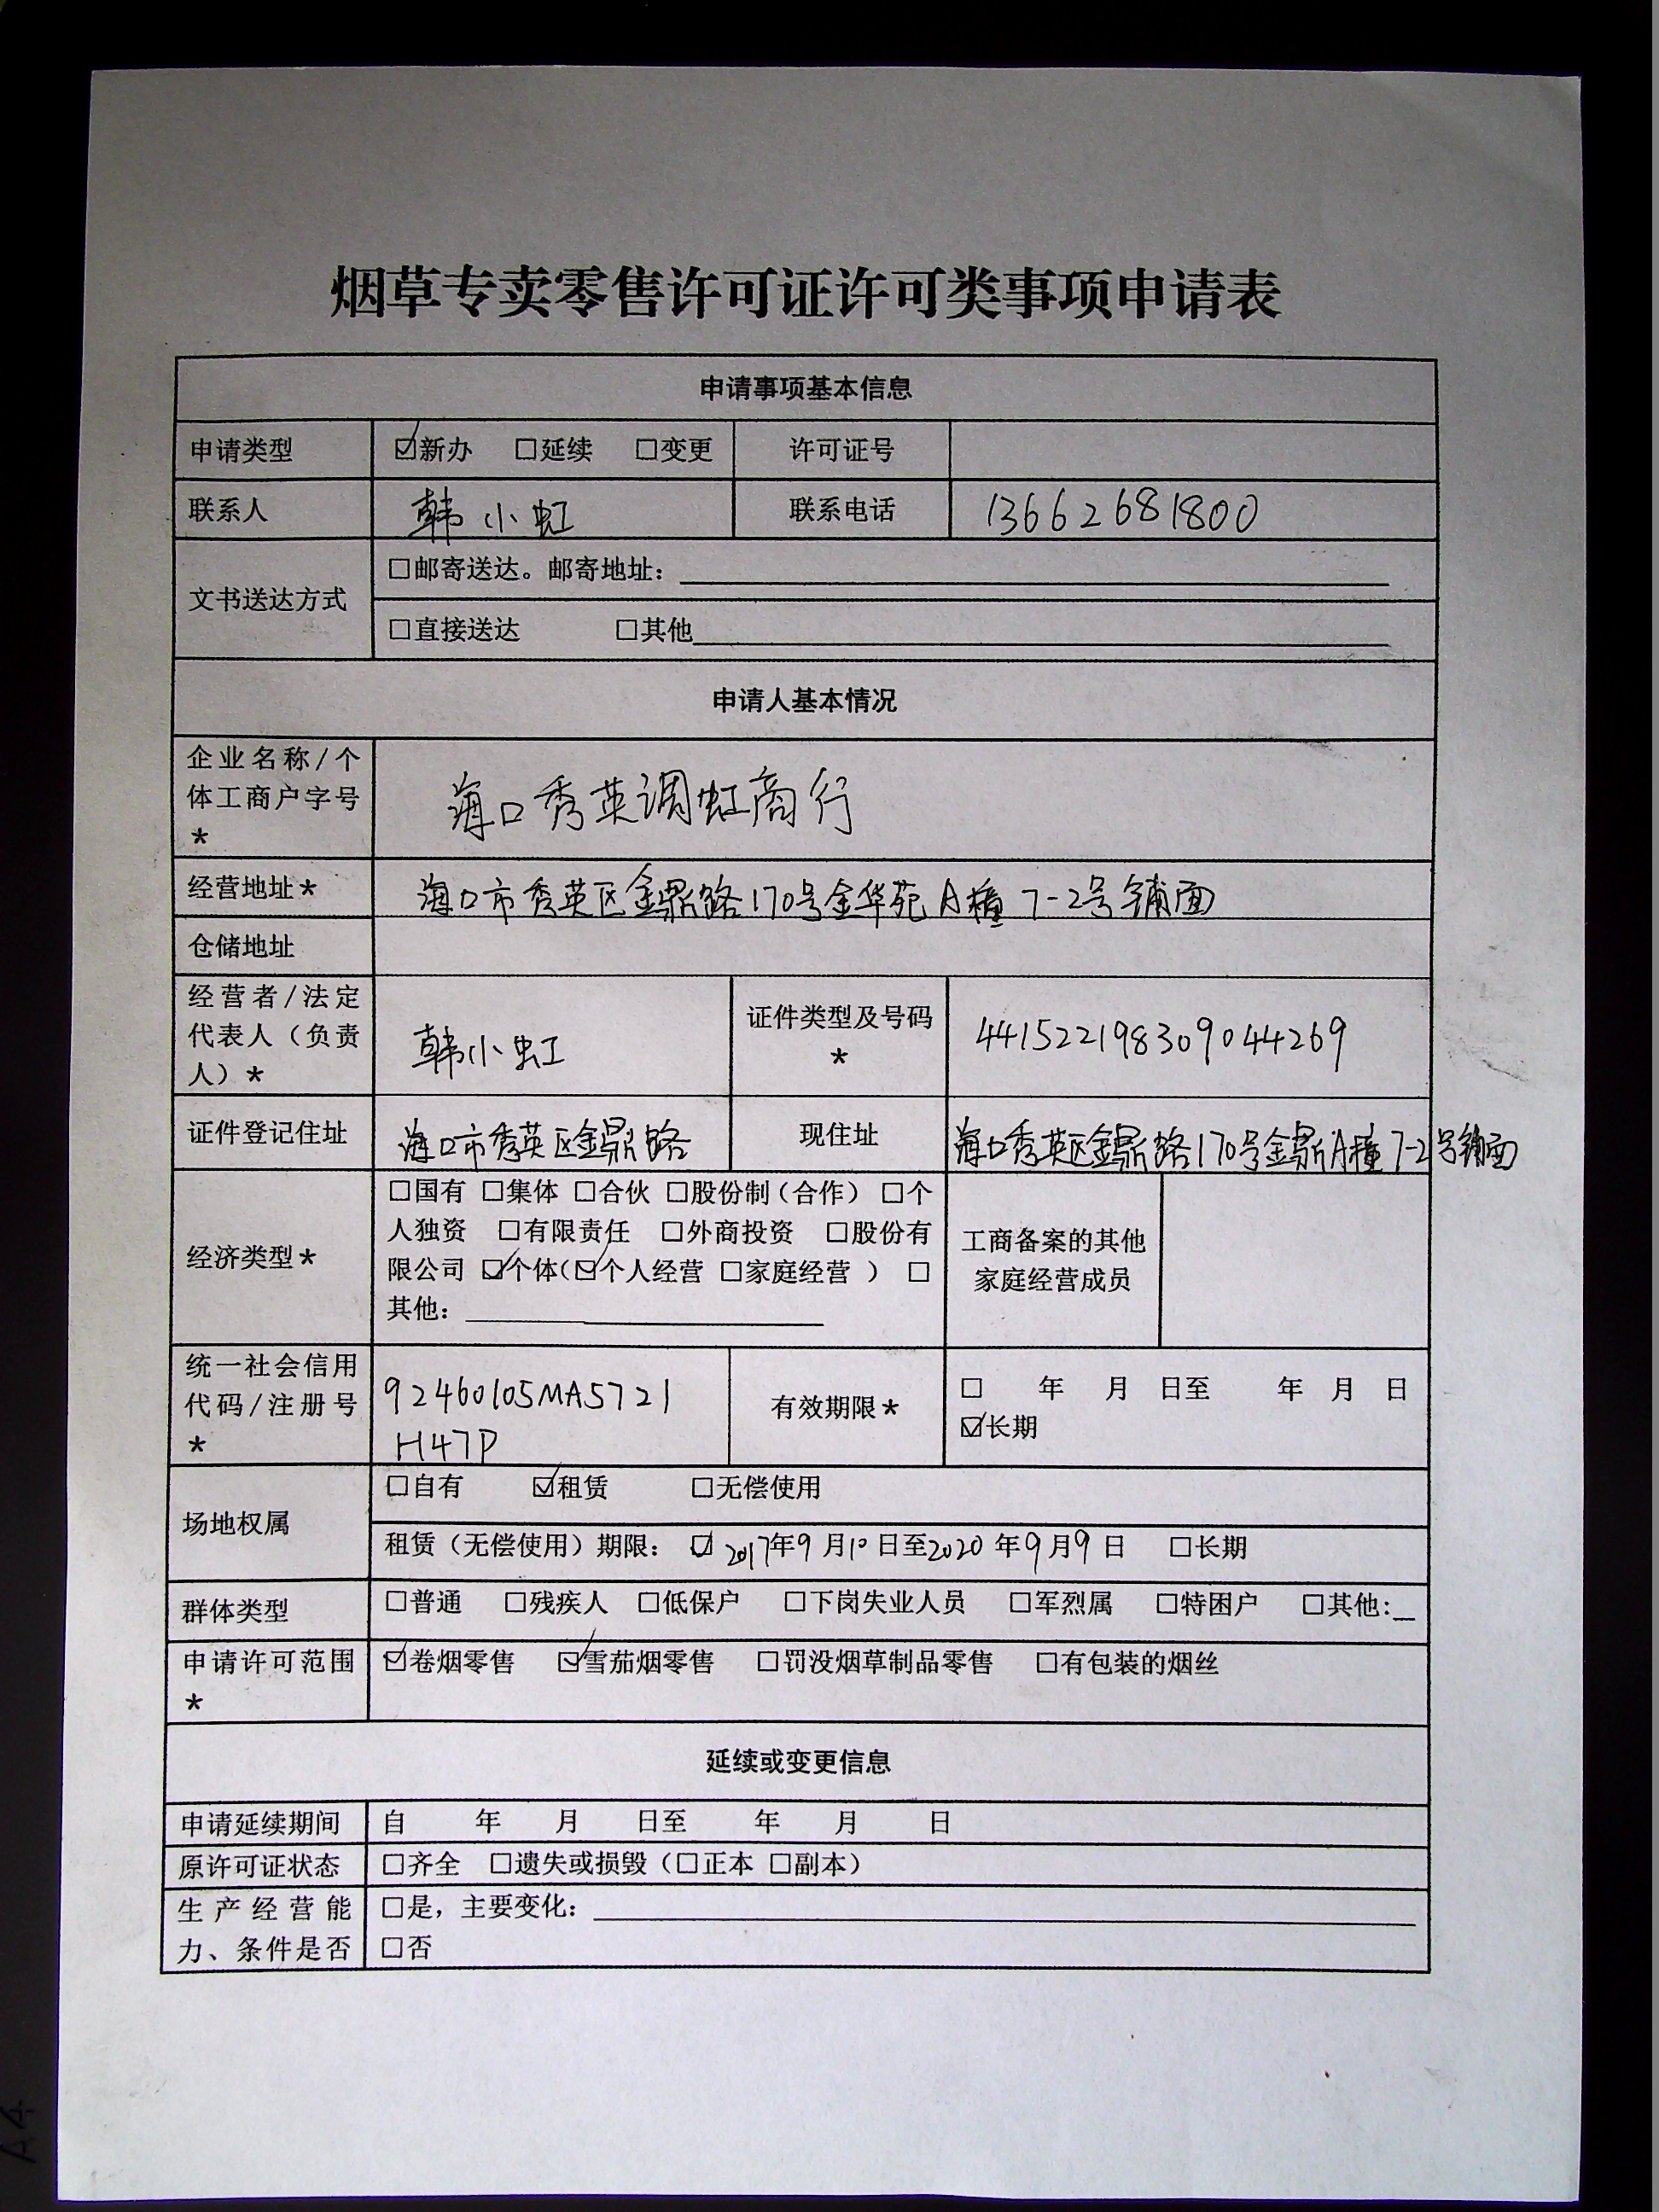 烟草专卖零售许可证许可类事项申请表
申请事项基本信息
申请类型 ☑新办 □延续 □变更 许可证号
联系人 韩小虹 联系电话 13662681800
文书送达方式
□邮寄送达。邮寄地址：
□直接送达 □其他
申请人基本情况
企业名称/个
体工商户字号
*
海口秀英调虹商行
经营地址* 海口市秀英区金鼎路170号金华苑A幢7-2号铺面
仓储地址
经营者/法定
代表人（负责
人）*
韩小虹
证件类型及号码
*
441522198309044269
证件登记住址 海口市秀英区金鼎路 现住址 海口秀英区金鼎路170号金鼎A幢7-2号铺面
经济类型*
□国有 □集体 □合伙 □股份制（合作） □个
人独资 □有限责任 □外商投资 □股份有
限公司 ☑个体（☑个人经营 □家庭经营 ） □
其他：
工商备案的其他
家庭经营成员
统一社会信用
代码/注册号
*
92460105MA5721
H47P
有效期限*
□ 年 月 日至 年 月 日
☑长期
场地权属
□自有 ☑租赁 □无偿使用
租赁（无偿使用）期限： ☑ 2017年9月10日至2020年9月9日 □长期
群体类型 □普通 □残疾人 □低保户 □下岗失业人员 □军烈属 □特困户 □其他:
申请许可范围
*
☑卷烟零售 ☑雪茄烟零售 □罚没烟草制品零售 □有包装的烟丝
延续或变更信息
申请延续期间 自 年 月 日至 年 月 日
原许可证状态 □齐全 □遗失或损毁（□正本 □副本）
生产经营能
力、条件是否
□是，主要变化：
□否
A4